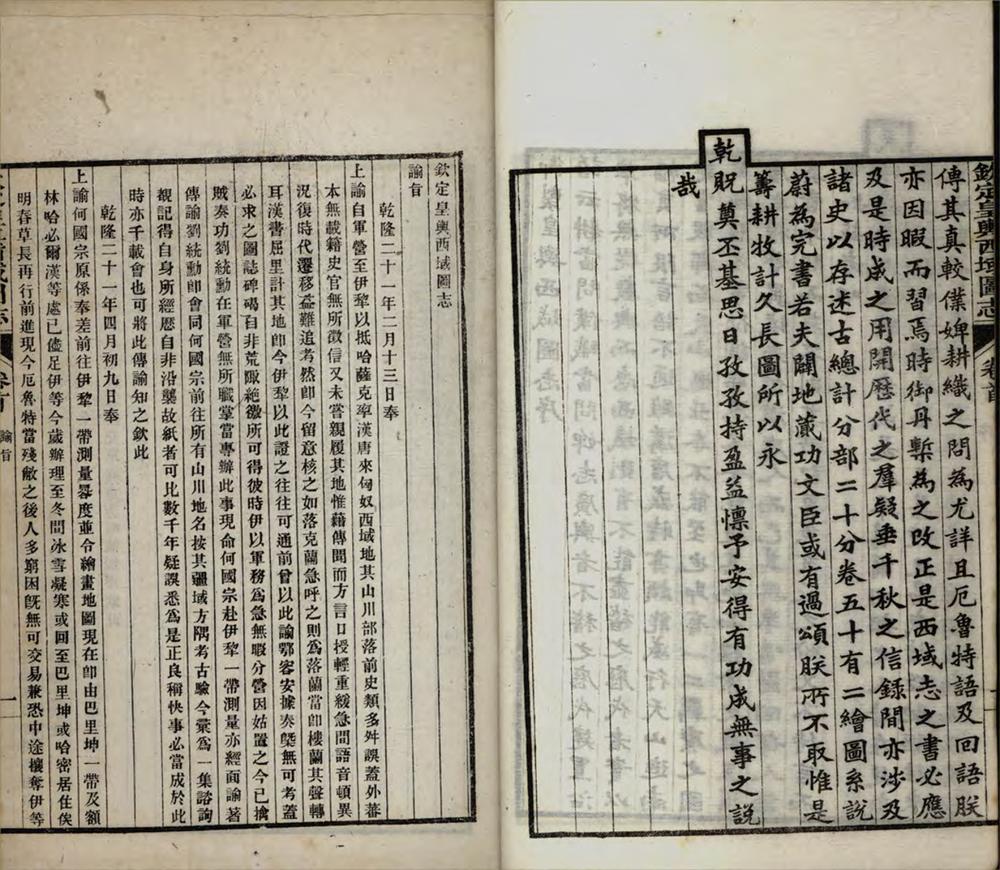 欽定皇輿西域圖志
卷首
傳其真較僕婢耕織之問為尤詳且厄魯特語及回語朕
亦因暇而習焉時御丹鏨為之改正是西域志之書必應
及是時成之用開歷代之羣疑垂千秋之信錄間亦涉及
諸史以存述古總計分部二十分卷五十有二繪圖系說
蔚為完書若夫闢地蕆功文臣或有過頌朕所不取惟是
籌耕牧計久長圖所以永
乾貺奠丕基思日孜孜持盈益懔予安得有功成無事之說
哉
欽定皇輿西域圖志
諭旨
乾隆二十一年二月十三日奉
上諭自軍營至伊犂以抵哈薩克率漢唐來匈奴西域地其山川部落前史類多舛誤蓋外蕃
本無載籍史官無所徵信又未嘗親履其地惟藉傳聞而方言口授輕重緩急間語音頓異
況復時代遷移益難追考然即今留意核之如落克蘭急呼之則為落蘭當即樓蘭其聲轉
耳漢書屈里計其地即今伊犂以此證之往往可通前曾以此諭鄂容安據奏槩無可考蓋
必求之圖誌碑碣自非荒陬絶徼所可得彼時伊以軍務為急無暇分營因姑置之今已擒
賊奏功劉統勳在軍營無所職掌當專辦此事現命何國宗赴伊犂一帶測量亦經面諭著
傳諭劉統勳即會同何國宗前往所有山川地名按其疆域方隅考古驗今彙為一集諮詢
覩記得自身所經歷自非沿襲故紙者可比數千年疑誤悉為是正良稱快事必當成於此
時亦千載會也可將此傳諭知之欽此
乾隆二十一年四月初九日奉
上諭何國宗原係奉差前往伊犂一帶測量晷度並令繪畫地圖現在即由巴里坤一帶及額
林哈必爾漢等處已儘足伊等今歲辦理至冬間冰雪凝寒或回至巴里坤或哈密居住俟
明春草長再行前進現今厄魯特當殘敝之後人多窮困旣無可交易兼恐中途攘奪伊等
卷首
諭旨
一